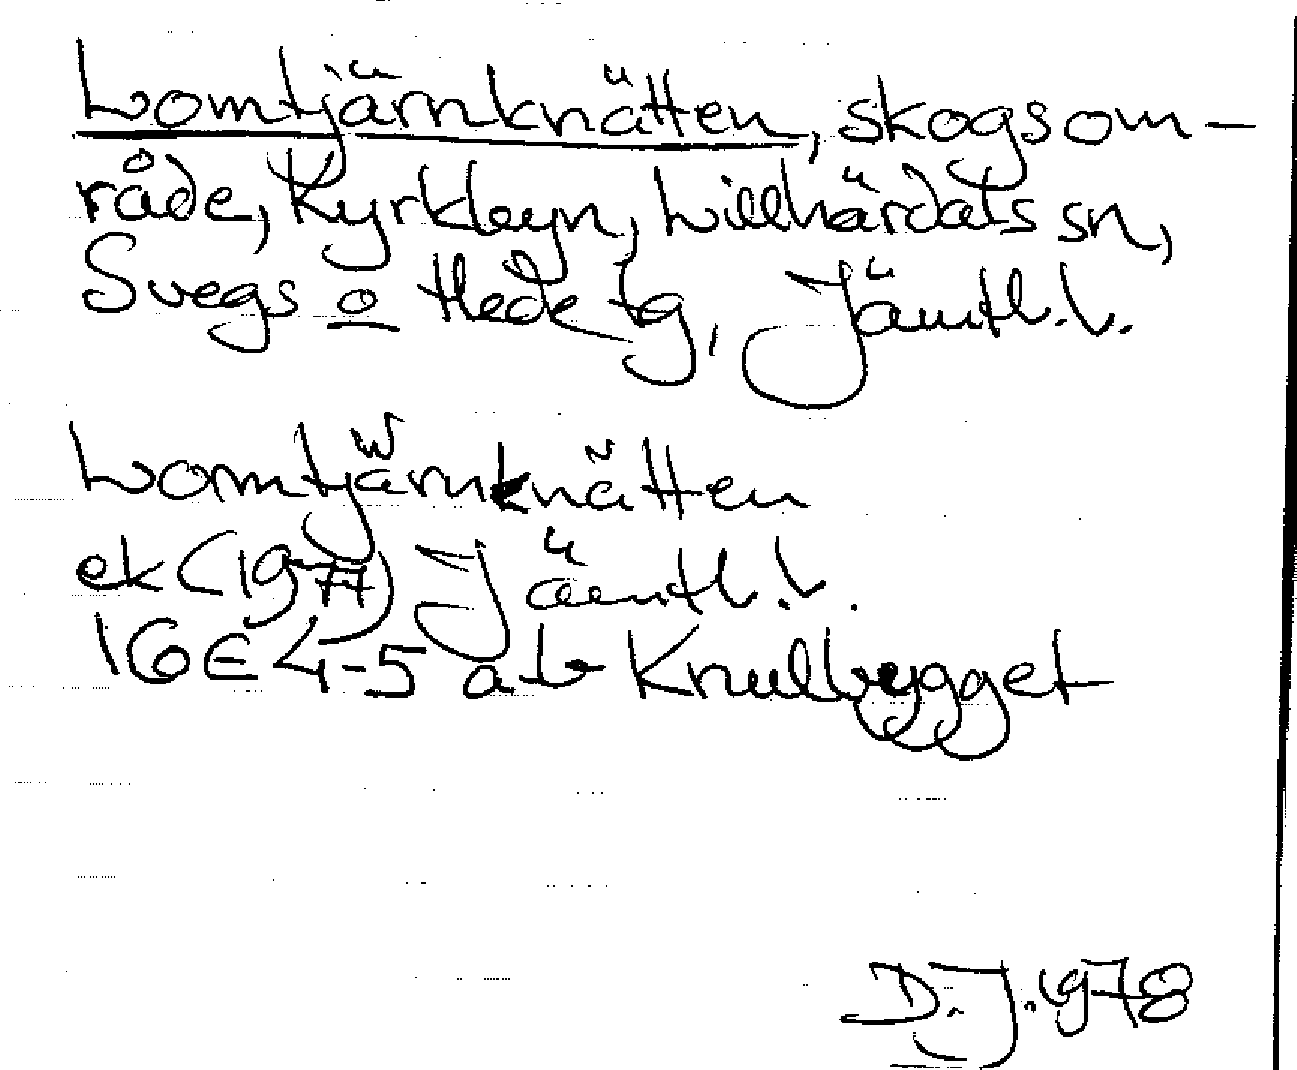 Lomtjärnknätten, skogsom-
råde, Kyrkbyn, Lillhärdals sn,
Svegs o Hede tg, Jämtl.l.
Lomtjärnknätten
ek (1977) Jämtl.l.
16E 4-5 a-b Knullbygget
D.J. 1978